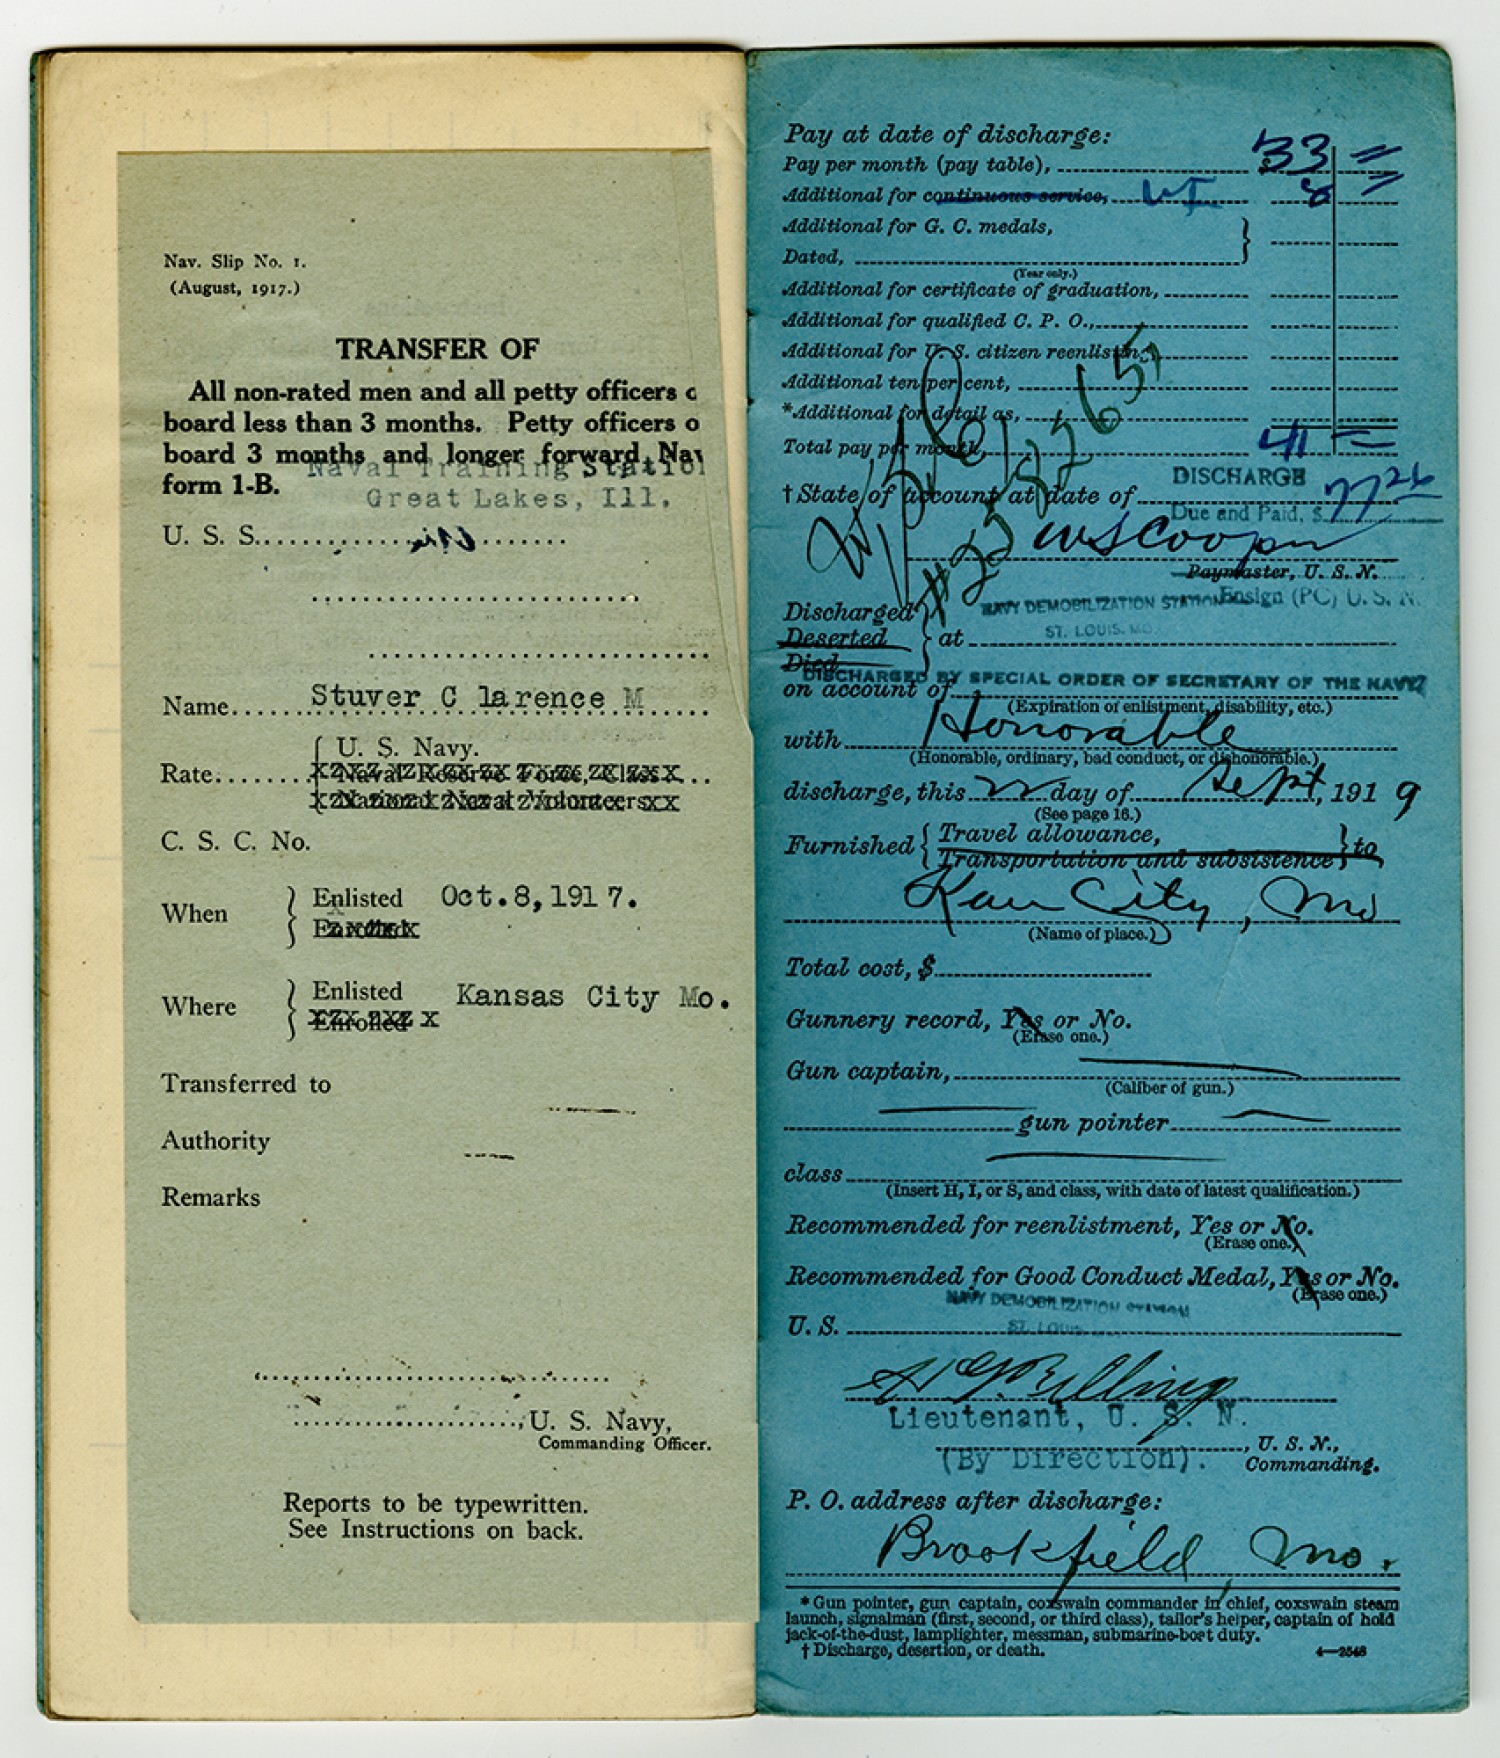 Nav. Slip No. 1.
(August, 1917.)
TRANSFER OF
All non-rated men and all petty officers o
board less than 3 months. Petty officers o
board 3 months and longer forward Nav
form 1-B.
Naval Training Station
Great Lakes, Ill.
U. S. S.
Name Stuver C larence M
Rate U. S. Navy.
Naval Reserve Force, Class
National Naval Volunteers
C. S. C. No.
When Enlisted Oct.8,1917.
Enrolled
Where Enlisted Kansas City Mo.
Enrolled
Transferred to
Authority
Remarks
U. S. Navy,
Commanding Officer.
Reports to be typewritten.
See Instructions on back.
Pay at date of discharge:
Pay per month (pay table), 33
Additional for continuous service, 8
Additional for G. C. medals,
Dated,
(Year only.)
Additional for certificate of graduation,
Additional for qualified C. P. O.,
Additional for U. S. citizen reenlisting,
Additional ten per cent,
*Additional for detail as,
Total pay per month, 41
† State of account at date of DISCHARGE
Due and Paid, $ 77 26
W S Cooper
Paymaster, U. S. N.
Ensign (PC) U. S. N.
Discharged
Deserted
Died
at NAVY DEMOBILIZATION STATION
ST. LOUIS. MO.
DISCHARGED BY SPECIAL ORDER OF SECRETARY OF THE NAVY
on account of
(Expiration of enlistment, disability, etc.)
with Honorable
(Honorable, ordinary, bad conduct, or dishonorable.)
discharge, this day of Sept, 1919
(See page 16.)
Furnished Travel allowance,
Transportation and subsistence to
Kan City, Mo
(Name of place.)
Total cost, $
Gunnery record, Yes or No.
(Erase one.)
Gun captain,
(Caliber of gun.)
gun pointer
class
(Insert H, I, or S, and class, with date of latest qualification.)
Recommended for reenlistment, Yes or No.
(Erase one.)
Recommended for Good Conduct Medal, Yes or No.
(Erase one.)
NAVY DEMOBILIZATION STATION
ST. LOUIS
U. S.
Lieutenant, U. S. N.
(By Direction).
U. S. N.,
Commanding.
P. O. address after discharge:
Brookfield, Mo.
* Gun pointer, gun captain, coxswain commander in chief, coxswain steam
launch, signalman (first, second, or third class), tailor's helper, captain of hold
jack-of-the-dust, lamplighter, messman, submarine-boat duty.
† Discharge, desertion, or death.
4—2548